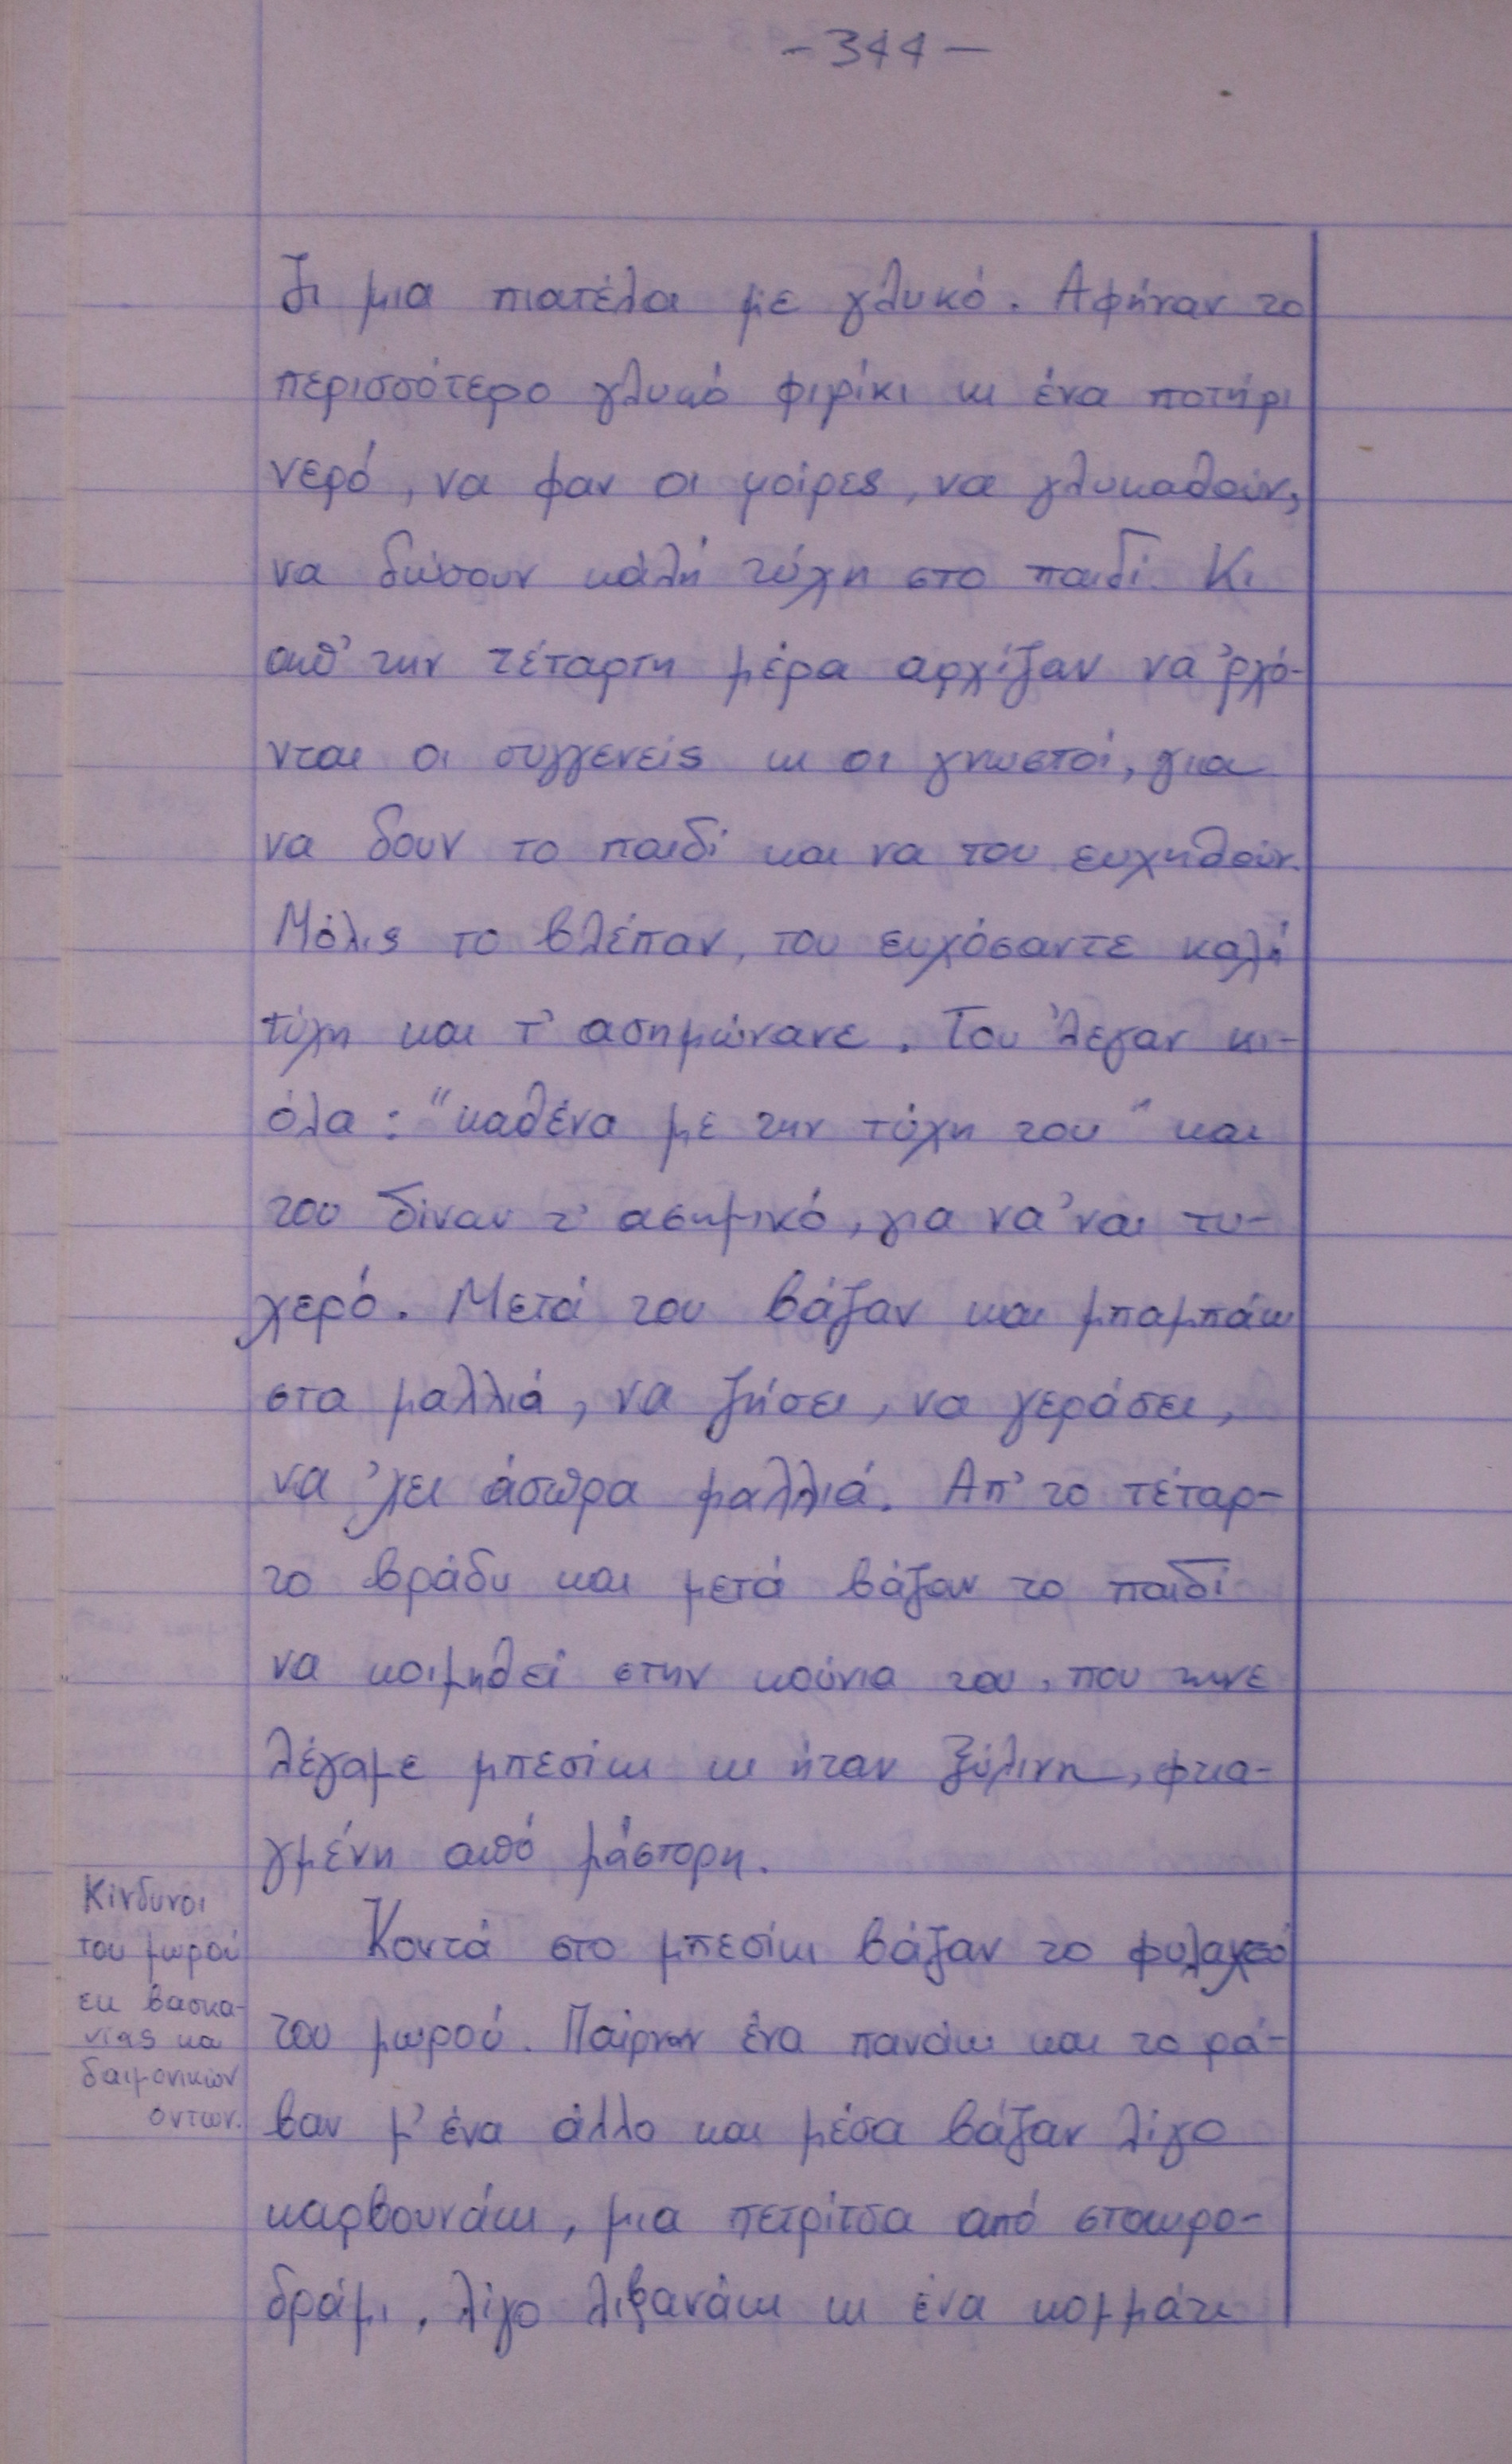 -344-
ζι μια πιατέλα με γλυκό. Αφήναν το
περισσότερο γλυκό φιρίκι κι ένα ποτήρι
νερό, να φαν οι μοίρες, να γλυκαθούν,
να δώσουν καλή τύχη στο παιδί. Κι
απ' την τέταρτη μέρα αρχίζαν να 'ρχό-
νται οι συγγενείς κι οι γνωστοί, για
να δουν το παιδί και να του ευχηθούν.
Μόλις το βλέπαν, του ευχόσαντε καλή
τύχη και τ' ασημώνανε. Του 'λεγαν κι-
όλα: "καθένα με την τύχη του" και
του δίναν τ' ασημικό, για να 'ναι τυ-
χερό. Μετά του βάζαν και μπαμπάκι
στα μαλλιά, να ζήσει, να γεράσει,
να 'χει άσπρα μαλλιά. Απ' το τέταρ-
το βράδυ και μετά βάζαν το παιδί
να κοιμηθεί στην κούνια του, που τηνε
λέγαμε μπεσίκι κι ήταν ξύλινη, φτια-
γμένη από μάστορη.
Κίνδυνοι
του μωρού
εκ βασκα-
νίας και
δαιμονικών
όντων.
Κοντά στο μπεσίκι βάζαν το φυλαχτό
του μωρού. Παίρναν ένα πανάκι και το ρά-
βαν μ' ένα άλλο και μέσα βάζαν λίγο
καρβουνάκι, μια πετρίτσα από σταυρο-
δρόμι, λίγο λιβανάκι κι ένα κομμάτι